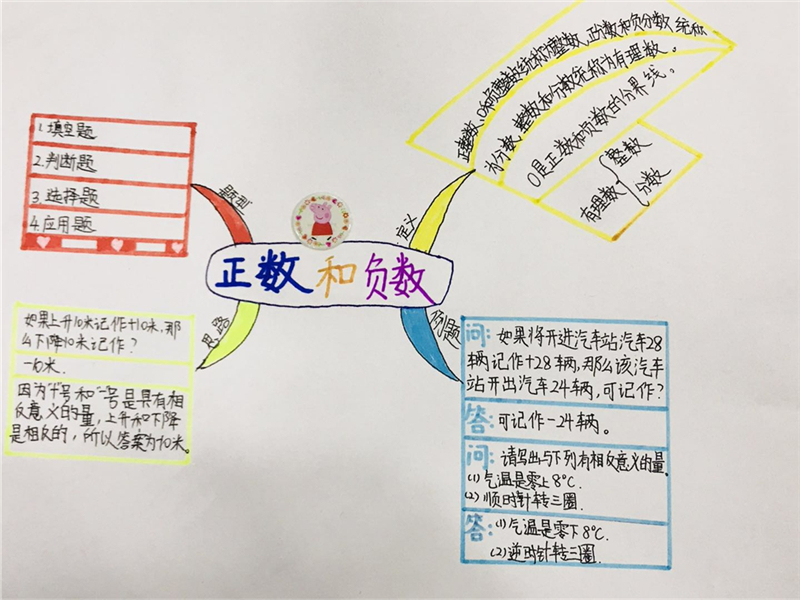 正数和负数
题型
1.填空题
2.判断题
3.选择题
4.应用题
定义
正整数、0和负整数统称为整数,正分数和负分数统称
为分数,整数和分数统称为有理数。
0是正数和负数的分界线。
有理数
整数
分数
思路
如果上升10米记作+10米,那
么下降10米记作?
-10米.
因为"+"号和"-"号是具有相
反意义的量,上升和下降
是相反的,所以答案为-10米。
例题
问:如果将开进汽车站汽车28
辆记作+28辆,那么该汽车
站开出汽车24辆,可记作?
答:可记作-24辆。
问:请写出与下列有相反意义的量.
(1)气温是零上8℃.
(2)顺时针转三圈.
答:(1)气温是零下8℃.
(2)逆时针转三圈.